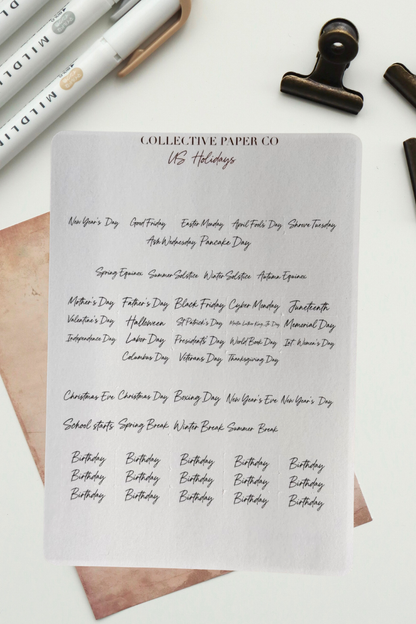 MILDLI
MILDLIN
MILDLI
COLLECTIVE PAPER CO
US Holidays
New Year's Day Good Friday Easter Monday April Fools' Day Shrove Tuesday
Ash Wednesday Pancake Day
Spring Equinox Summer Solstice Winter Solstice Autumn Equinox
Mother's Day Father's Day Black Friday Cyber Monday Juneteenth
Valentine's Day Halloween St Patrick's Day Martin Luther King Jr. Day Memorial Day
Independence Day Labor Day Presidents' Day World Book Day Int. Women's Day
Columbus Day Veterans Day Thanksgiving Day
Christmas Eve Christmas Day Boxing Day New Year's Eve New Year's Day
School starts Spring Break Winter Break Summer Break
Birthday Birthday Birthday Birthday Birthday
Birthday Birthday Birthday Birthday Birthday
Birthday Birthday Birthday Birthday Birthday